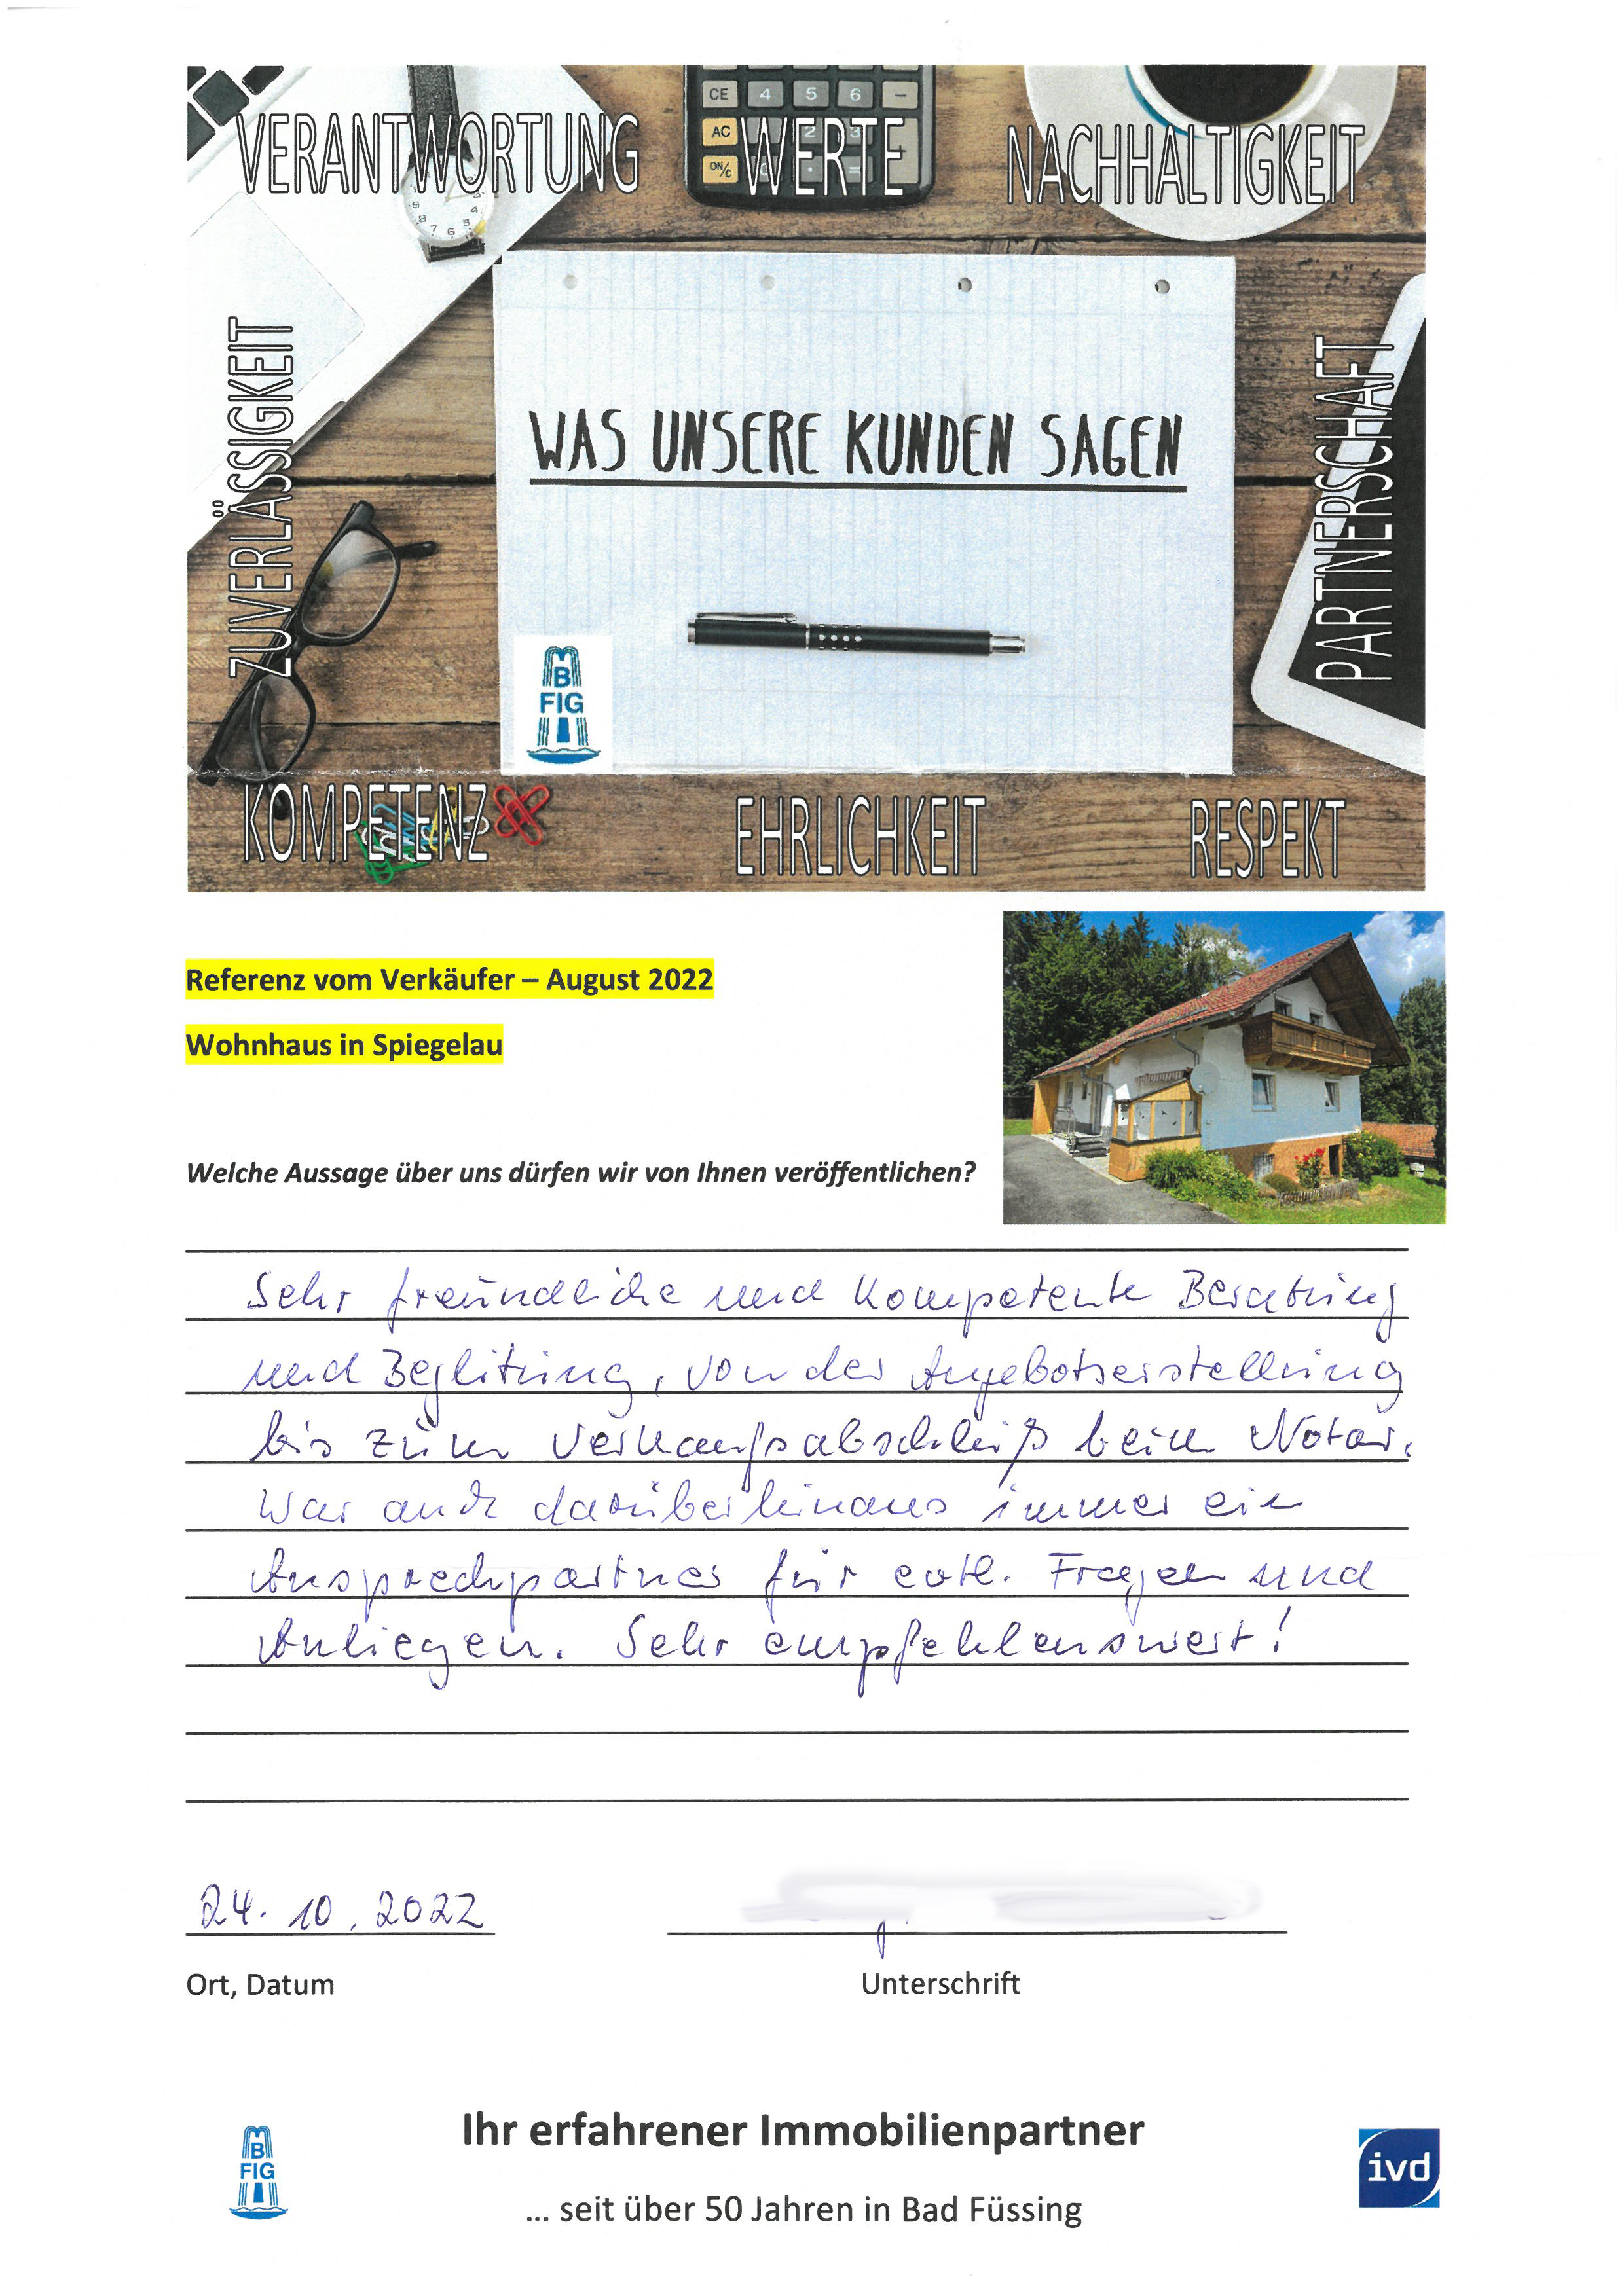 VERANTWORTUNG
WERTE
NACHHALTIGKEIT
CE 4 5 6 −
AC 2 3
ON/C
ZUVERLÄSSIGKEIT
WAS UNSERE KUNDEN SAGEN
PARTNERSCHAFT
B
FIG
KOMPETENZ
EHRLICHKEIT
RESPEKT
Referenz vom Verkäufer – August 2022
Wohnhaus in Spiegelau
Welche Aussage über uns dürfen wir von Ihnen veröffentlichen?
Sehr freundliche und Kompetente Beratung
und Beglitung, von der Angebotserstellung
bis zum Verkaufsabschluß beim Notar.
War auch darüberhinaus immer ein
Ansprechpartner für evtl. Fragen und
Anliegen. Sehr empfehlenswert!
24.10.2022
Ort, Datum
Unterschrift
Ihr erfahrener Immobilienpartner
B
FIG
ivd
... seit über 50 Jahren in Bad Füssing